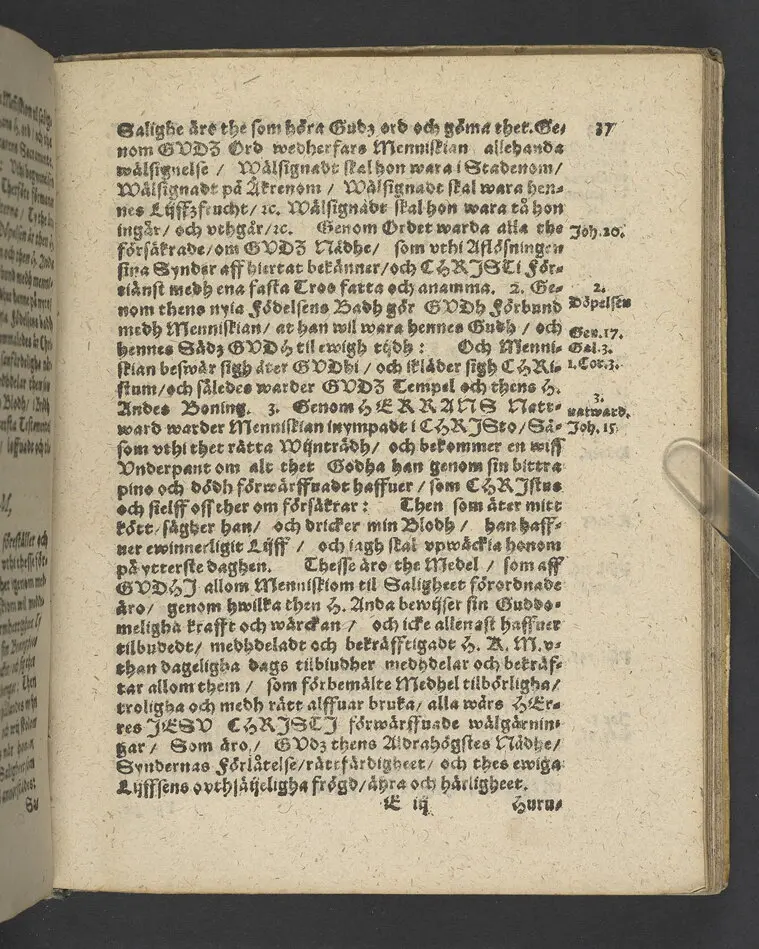 37
Salighe äre the som höra Gudz ord och göma thet. Ge⸗
nom GVDZ Ord wedherfars Menniskian allehanda
wälsignelse / Wälsignadt skal hon wara i Stadenom/
Wälsignadt på Åkrenom / Wälsignadt skal wara hen⸗
nes Lijffzfrucht/ ꝛc. Wälsignadt skal hon wara tå hon
ingår/ och vthgår/ꝛc. Genom Ordet warda alla the
Joh. 20.
försäkrade/om GVDZ Nådhe/ som vthi Aflösningen
sina Synder aff hiertat bekänner/och CHRJSTi För⸗
tiänst medh ena fasta Troo fatta och anamma. 2. Ge⸗
2.
nom thens nyia Födelsens Badh gör GVDh Förbund
Döpelsen
medh Menniskian/ at han wil wara hennes Gudh / och
Gen. 17.
hennes Sädz GVDh til ewigh tijdh: Och Menni⸗
Gal. 3.
skian beswär sigh åter GVDhi / och ikläder sigh CHRi⸗
1. Cor. 3.
stum/och således warder GVDZ Tempel och thens H.
Andes Boning. 3. Genom HERRANS Natt⸗
3.
natward.
ward warder Menniskian inympadt i CHRJSto/ Så⸗
Joh. 15
som vthi thet rätta Wijnträdh/ och bekommer en wiss
Vnderpant om alt thet Godha han genom sin bittra
pino och dödh förwärffuadt haffuer/ som CHRJstus
och sielff oss ther om försäkrar: Then som äter mitt
kött/ säger han/ och dricker min Blodh / han haff⸗
uer ewinnerligit Lijff / och iagh skal vpwäckia honom
på ytterste daghen. Thesse äro the Medel / som aff
GVDHJ allom Menniskiom til Saligheet förordnade
äro/ genom hwilka then H. Anda bewijser sin Guddo⸗
meligha krafft och wärckan / och icke allenast haffuer
tilbudedt/ medhdeladt och bekräfftigadt H. K. M. v⸗
than dageligha dags tilbiudher medhdelar och bekräf⸗
tar allom them / som förbemälte Medhel tilbörligha/
troligha och medh rätt alffuar bruka/ alla wårs HEr⸗
res JESV CHRJSTJ förwärffuade wälgärnin⸗
gar / Som äro / GVDz thens Aldrahögstes Nådhe/
Syndernas Förlåtelse/rättfärdigheet/ och thes ewiga
Lijffsens ovthsäijeligha frögd/ ähra och härligheet.
E iij Huru⸗